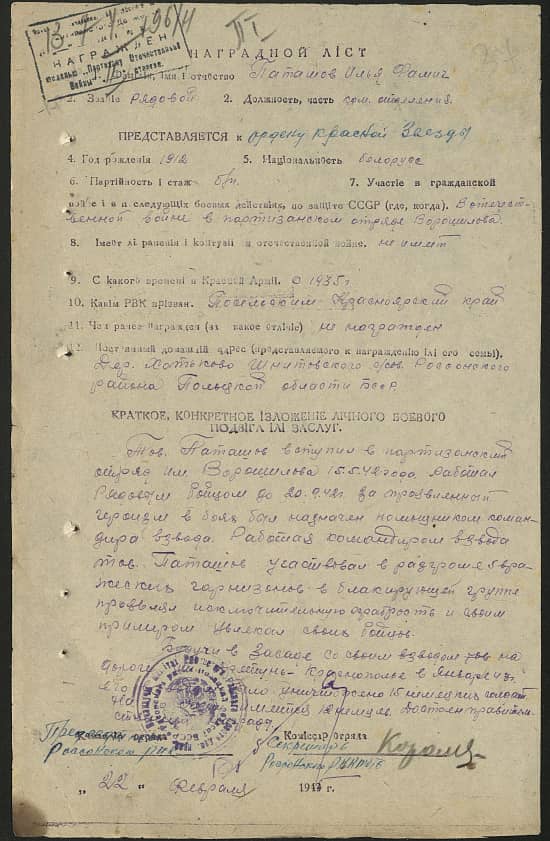 НАГРАЖДЕН
медалью „Партизану Отечественной
Войны" степени.
НАГРАДНОЙ ЛІСТ
імя і отчество Паташов Илья Фомич
2. Званіе Рядовой 2. Должность, часть ком. отделения.
ПРЕДСТАВЛЯЕТСЯ к ордену Красной Звезды
4. Год рождения 1912 5. Національность белорусс
6. Партійность і стаж б/п. 7. Участіе в гражданской
войне і в п следующіх боевых действіях, по защіте СССР (где, когда). В отечест-
венной войне в партизанском отряде Ворошилова.
8. Імеет лі раненія і контузіі в отечественной войне. не имеет
9. С какого времені в Красной Арміі. с 1935 г.
10. Какім РВК прізван. Красноярский край
11. Чем ранее награжден (за какое отлічіе) не награжден
12. Постоянный домашній адрес (представляемого к награжденію ілі его семьі).
Дер. Хатьково Шнитовского с/сов. Россонского
района Полоцкой области БССР.
КРАТКОЕ, КОНКРЕТНОЕ ІЗЛОЖЕНІЕ ЛІЧНОГО БОЕВОГО
ПОДВІГА ІЛІ ЗАСЛУГ.
Тов. Паташов вступил в партизанский
отряд им. Ворошилова 15.5.42 года. Работая
Рядовым бойцом до 20.9.42г. за проявленный
героизм в боях был назначен помощником коман-
дира взвода. Работая командиром взвода
тов. Паташов участвовал в разгроме 5 вра-
жеских гарнизонов в блакирующей группе
проявлял исключительную храбрость и своим
примером увлекал своих бойцов.
Будучи в Засаде со своим взводом на
дороге Краснополье в Январе 43 г.
уничтожено 15 немецких солдат
имеется немцев. Достоен правитель
награду
Россонского
Комиссар отряда
Секретарь
Россонского
„ 22 " Февраля 194 г.